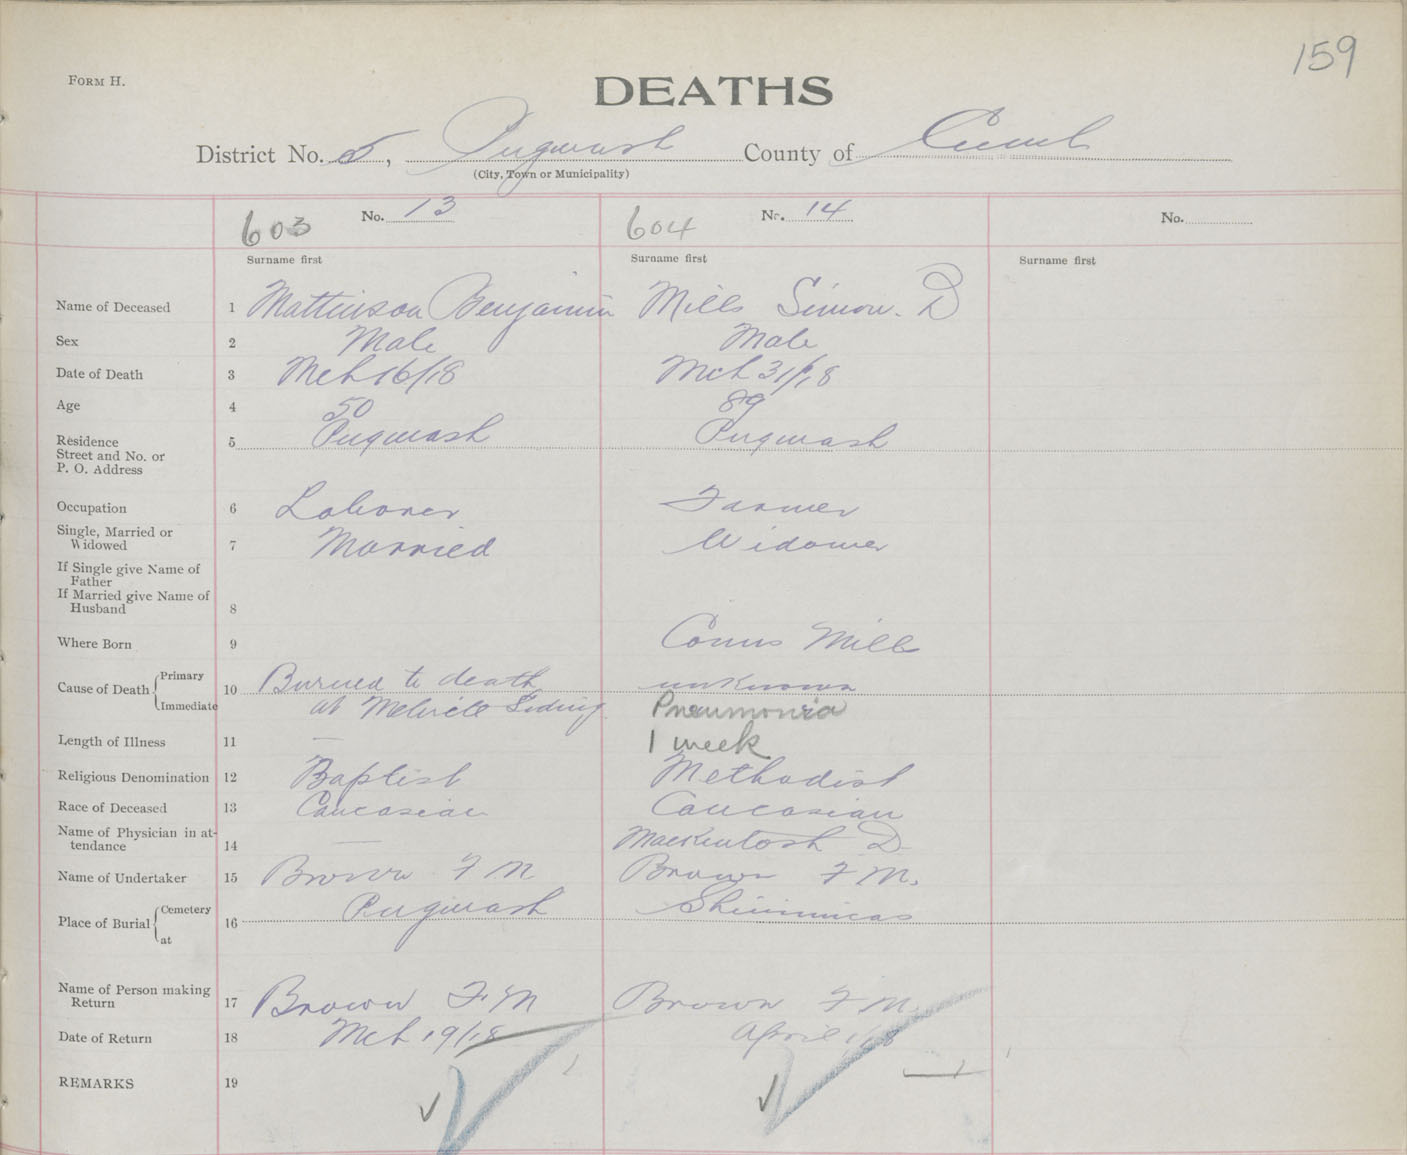 159
FORM H.
DEATHS
District No. 5, Pugwash County of Cumb
(City, Town or Municipality)
603 No. 13 604 No. 14 No.
Surname first Surname first Surname first
Name of Deceased 1 Mattinson Benjamin Mills Simon. D
Sex 2 Male Male
Date of Death 3 Mch 16/18 Mch 31/18
Age 4 50 89
Residence 5 Pugwash Pugwash
Street and No. or
P. O. Address
Occupation 6 Laborer Farmer
Single, Married or
Widowed 7 Married Widower
If Single give Name of
Father
If Married give Name of
Husband 8
Where Born 9 Conns Mills
Cause of Death { Primary 10 Burned to death unknown
Immediate at Melville Siding Pneumonia
Length of Illness 11 — 1 week
Religious Denomination 12 Baptist Methodist
Race of Deceased 13 Caucasian Caucasian
Name of Physician in at-
tendance 14 — Mackintosh D
Name of Undertaker 15 Brown F M Brown F M.
Place of Burial { Cemetery 16 Pugwash Shinimicas
at
Name of Person making
Return 17 Brown F. M Brown F M.
Date of Return 18 Mch 19/18 April 1/18
REMARKS 19